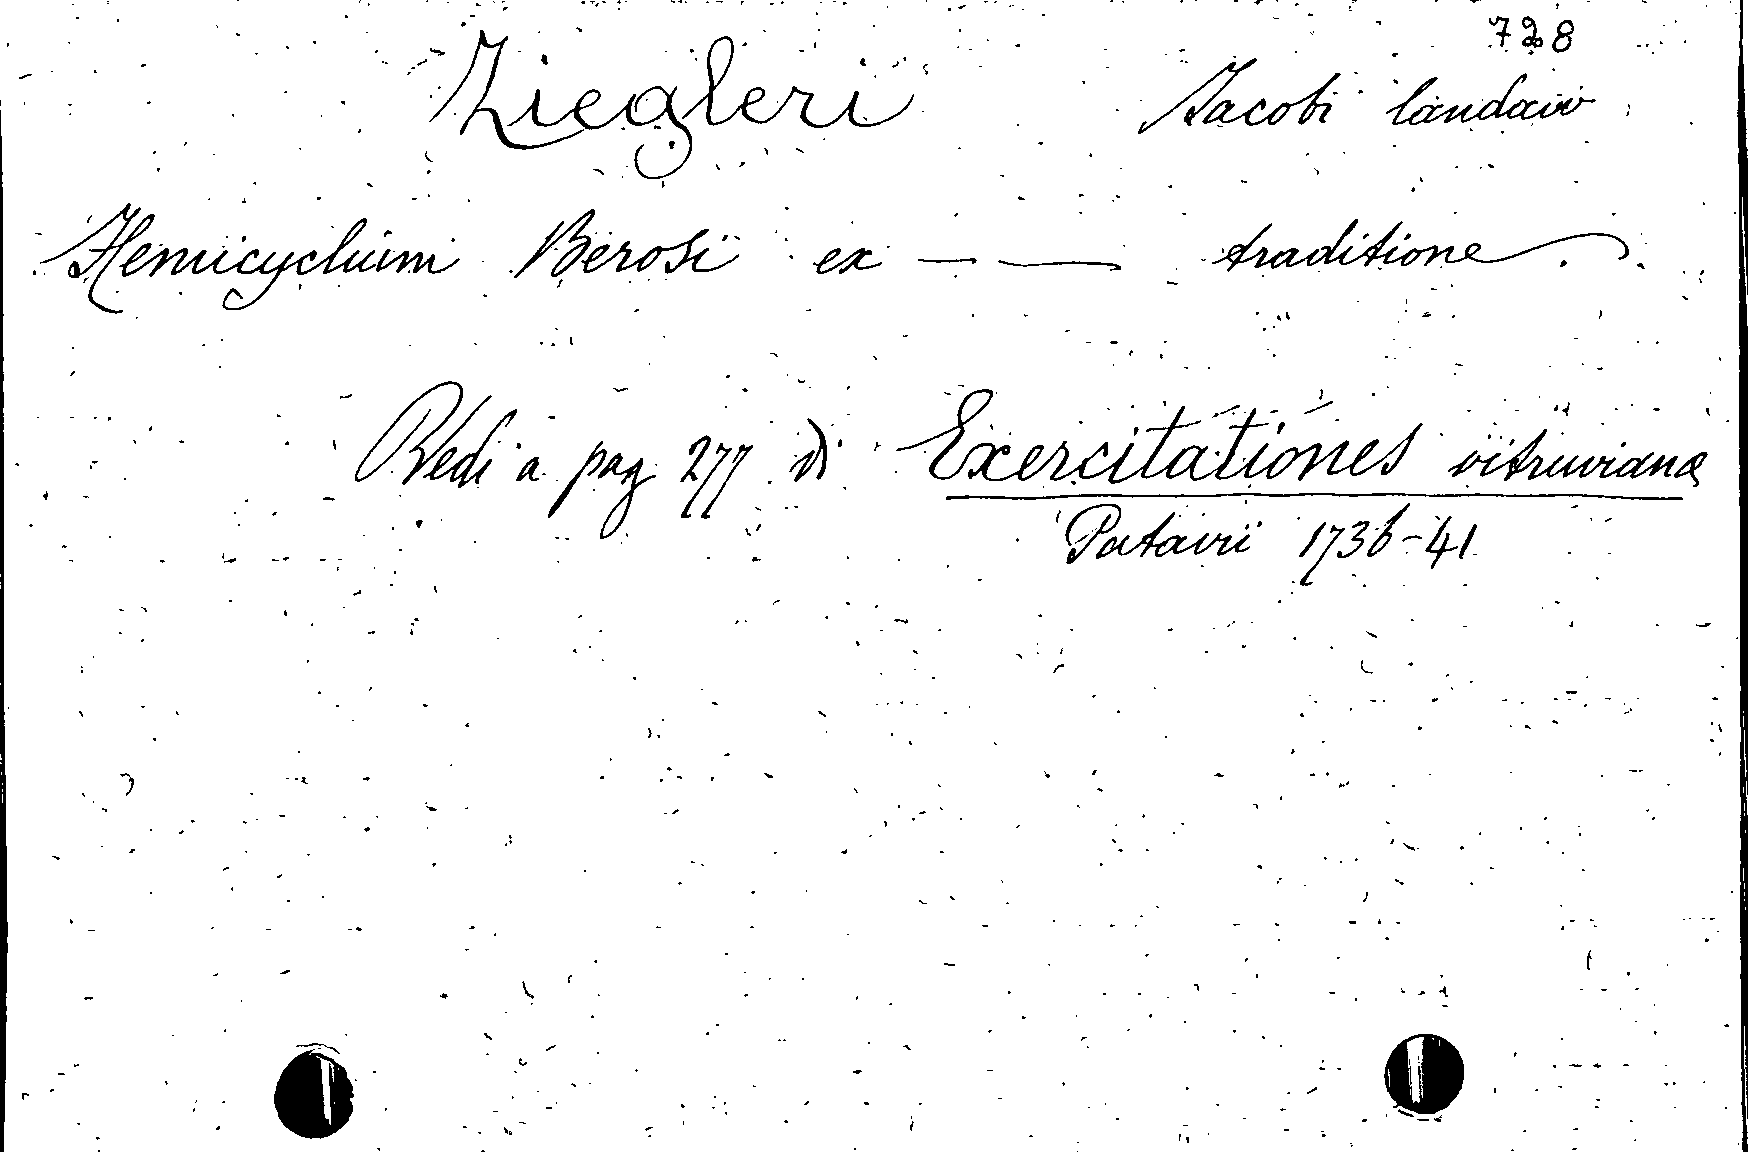 728
Ziegleri Jacobi landavi
Hemicyclium Berosi ex — — traditione.
Vedi a pag 277 di Exercitationes vitruvianæ
Patavii 1736-41